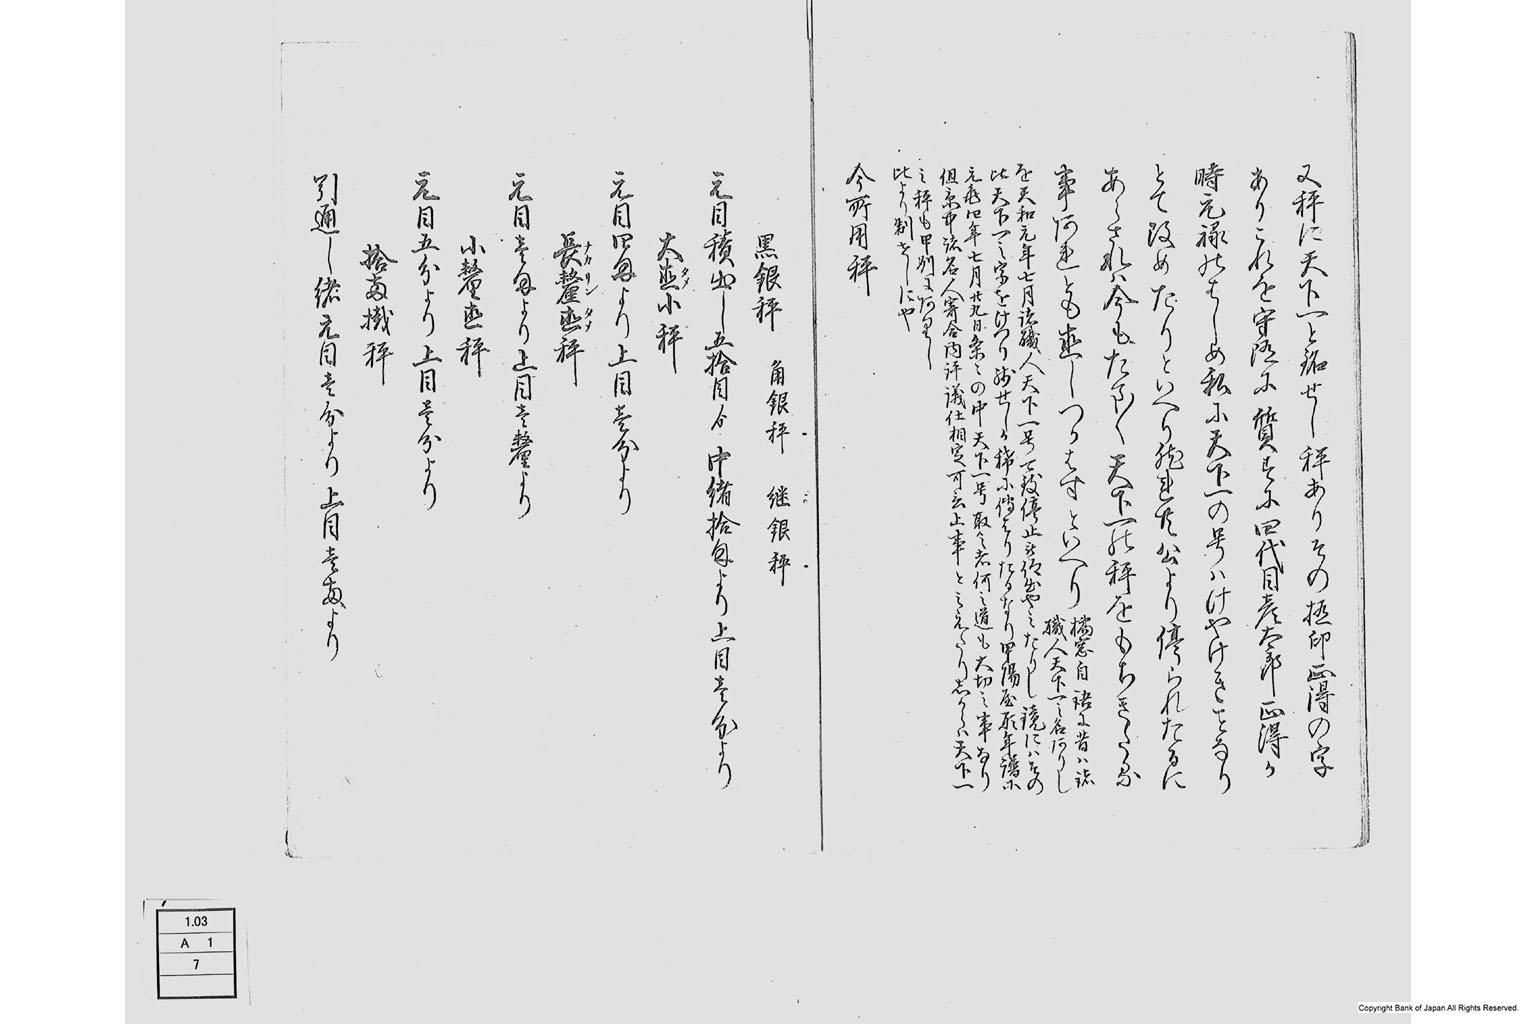 又秤に天下一と銘せし秤ありその極印正得の字
ありこれを守随に質すに四代目彦太郎正得か
時元禄のはしめ私に天下一の号はけやけきことなり
とて改めたりといへり然れ共公より停られたるに
あらされは今もたま〱天下一の秤をもちきたる
事あれとも出しつかはすといへり
橘窓自語に昔は諸
職人天下一之名ありし
を天和元年七月諸職人天下一号可致停止被仰出やみたりし鏡にはその
比天下一之字をけつり残せしか稀に伝はりたるなり甲陽屋形年譜に
元亀四年七月廿九日条々の中天下一号取候者何之道も大切之事なり
但京中諸名人寄合内評議仕相定可言上事とみえたりしからは天下一
之秤も甲州にありし
比より制せしにや
今所用秤
黒銀秤　角銀秤　継銀秤
元目積出し五拾目分　中緒拾匁より上目壱分より
大メ小秤
元目四匁より上目壱分より
長釐秤
ナカリンタメ
元目壱匁より上目壱釐より
小釐秤
元目五分より上目壱分より
拾両掛秤
引通し緒元目壱分より上目壱両より
1.03
A 1
7
Copyright Bank of Japan All Rights Reserved.